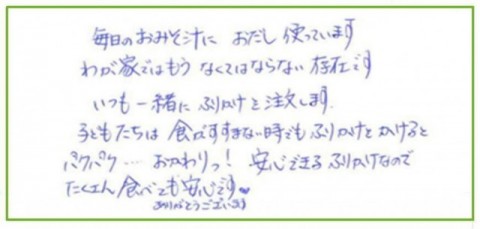 毎日のおみそ汁に おだし 使っています
わが家ではもう なくてはならない 存在です
いつも一緒に ふりかけも注文します.
子どもたちは 食がすすまない時でも ふりかけを かけると
パクパク… おかわりっ! 安心できる ふりかけなので
たくさん 食べても 安心です♥
ありがとうございます